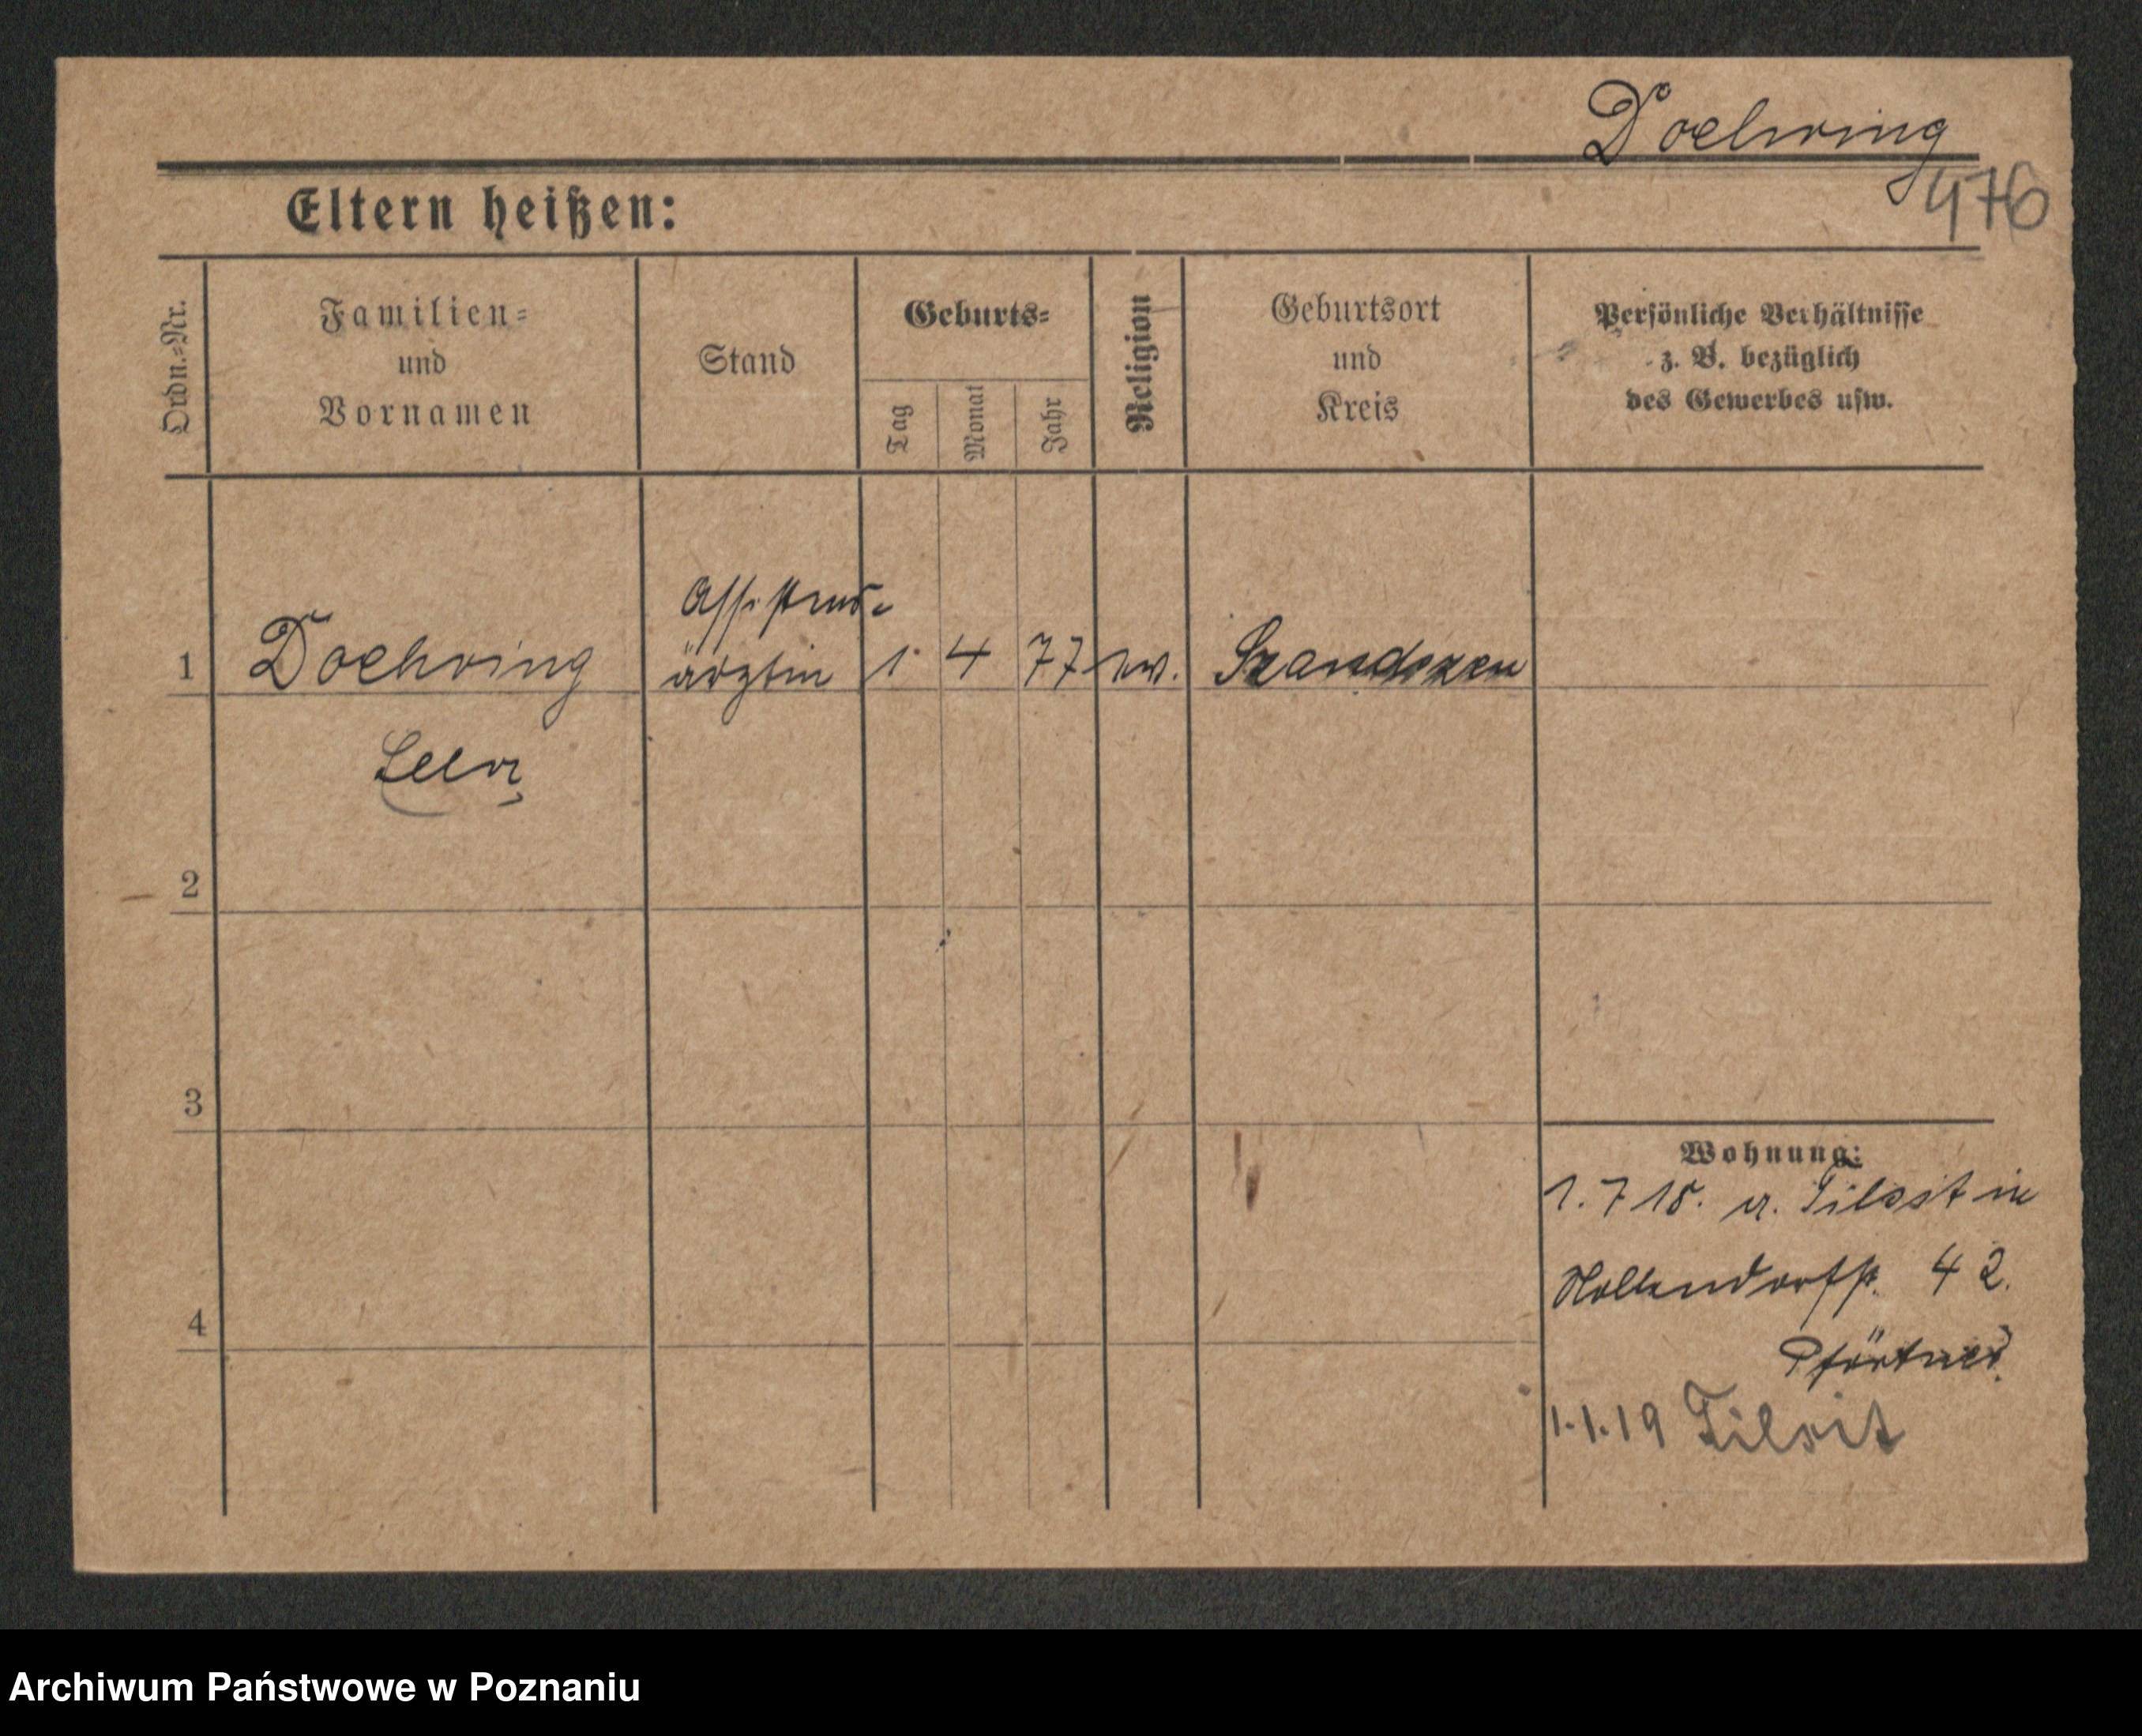 Doehring
476
Eltern heißen:
Ordn.=Nr.
Familien=
und
Vornamen
Stand
Geburts=
Tag
Monat
Jahr
Religion
Geburtsort
und
Kreis
Persönliche Verhältnisse
z. B. bezüglich
des Gewerbes usw.
Assistens-
1 Doehring ärztin 1. 4 77 ev.
2
3
4
Wohnung:
1. 7 18. a. Tilsit in
42.
Pförtner.
1.1.19 Tilsit
Archiwum Państwowe w Poznaniu